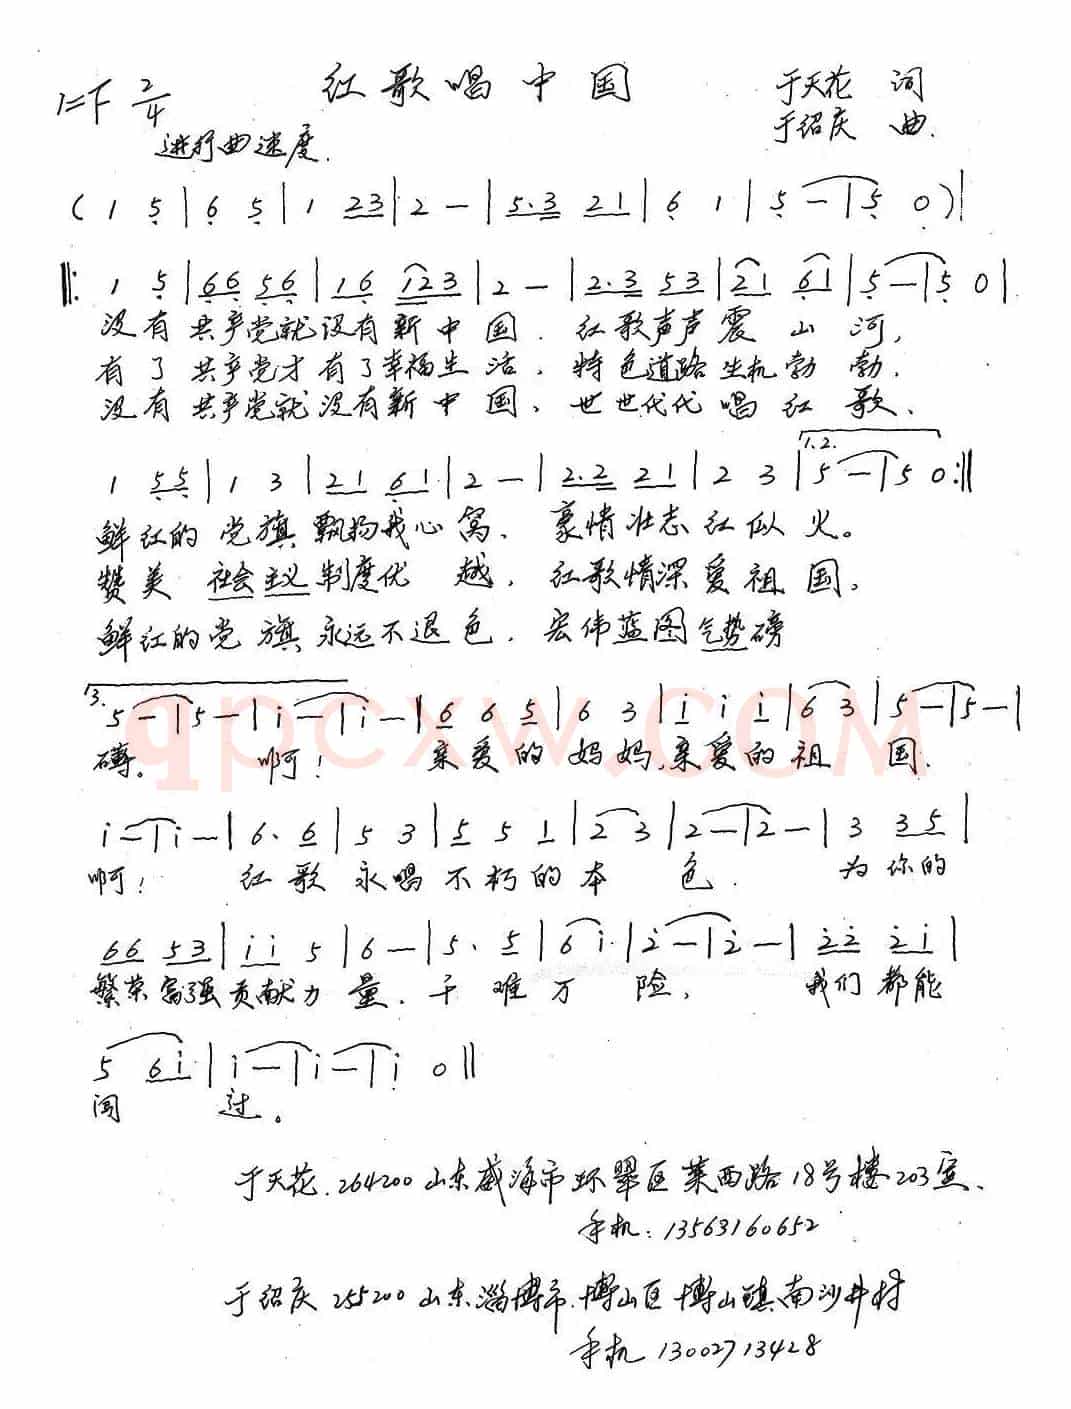 红歌唱中国
1=F 2/4
于天花 词
于绍庆 曲.
进行曲速度.
( 1 5 | 6 5 | 1 23 | 2 — | 5·3 21 | 6 1 | 5 — | 5 0 ) |
‖: 1 5 | 66 56 | 16 123 | 2 — | 2·3 53 | 21 61 | 5 — | 5 0 |
没有 共产党就没有新中国. 红歌声声震山河,
有了共产党才有了幸福生活, 特色道路生机勃勃,
没有共产党就没有新中国, 世世代代唱红歌,
1.2.
1 55 | 1 3 | 21 61 | 2 — | 2·2 21 | 2 3 | 5 — | 5 0 :‖
鲜红的党旗飘扬我心窝, 豪情壮志红似火。
赞美社会主义制度优越, 红歌情深爱祖国,
鲜红的党旗永远不退色, 宏伟蓝图气势磅
3.
5 — | 5 — | i — | i — | 6 6 5 | 6 3 | 1 i i | 6 3 | 5 — | 5 — |
礴。 啊! 亲爱的妈妈,亲爱的祖国.
qpcxw.com
i — | i — | 6· 6 | 5 3 | 5 5 1 | 2 3 | 2 — | 2 — | 3 35 |
啊! 红歌永唱不朽的本色. 为你的
66 53 | ii 5 | 6 — | 5· 5 | 6 i | 2 — | 2 — | 22 2i |
繁荣富强贡献力量, 千难万险, 我们都能
5 6i | i — | i — | i 0 ‖
闯过。
于天花.264200山东威海市环翠区莱西路18号楼203室、
手机:13563160652
于绍庆 255200 山东淄博市.博山区博山镇南沙井村
手机 13002713428